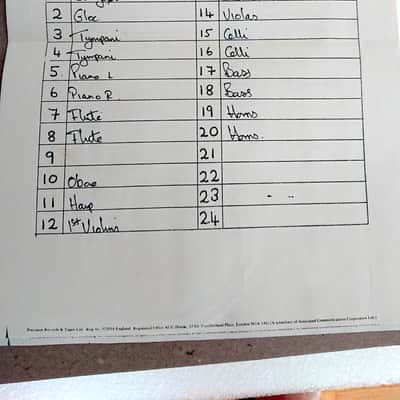 2 Gloc 14 Violas
3 Tympani 15 Celli
4 Tympani 16 Celli
5 Piano L 17 Bass
6 Piano R. 18 Bass
7 Flute 19 Horns
8 Flute 20 Horns.
9 21
10 Oboe 22
11 Harp 23 - -
12 1st Violins 24
Precision Records & Tapes Ltd. Reg. England Registered Office ACC House, Cumberland Place, London W1A 1AG (A subsidiary of Associated Communications Corporation Ltd.)